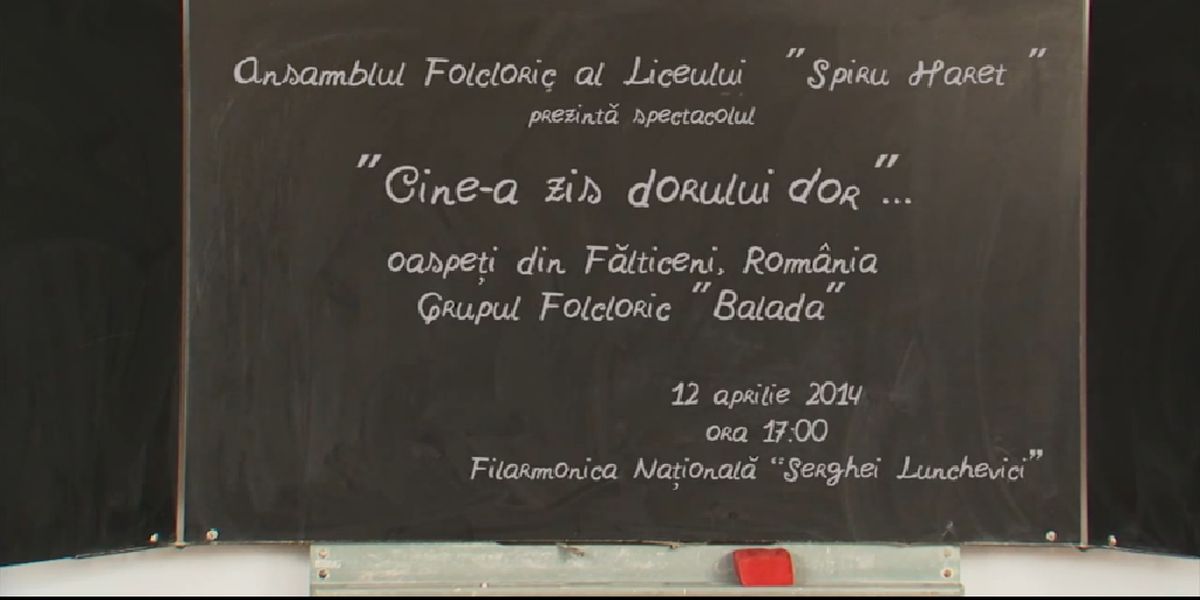 Ansamblul Folcloric al Liceului "Spiru Haret"
prezintă spectacolul
"Cine-a zis dorului dor"...
oaspeți din Fălticeni, România
Grupul Folcloric "Balada"
12 aprilie 2014
ora 17:00
Filarmonica Națională “Serghei Lunchevici”